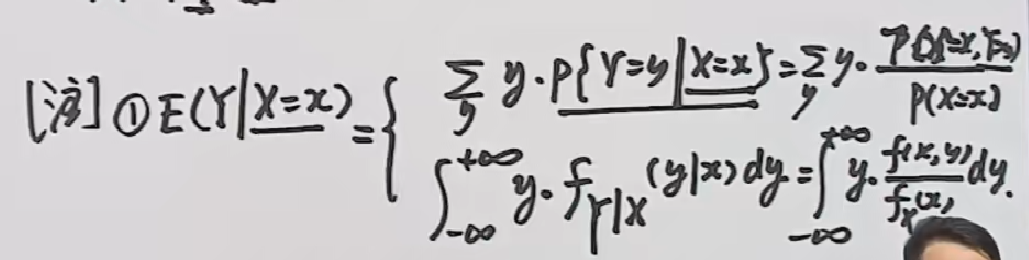 [注] ① E(Y|X=x) = {
∑_y y·P{Y=y|X=x} = ∑_y y· P(X=x, Y=y) / P(X=x)
∫_{-∞}^{+∞} y·f_{Y|X}(y|x)dy = ∫_{-∞}^{+∞} y· f(x,y) / f_X(x) dy.